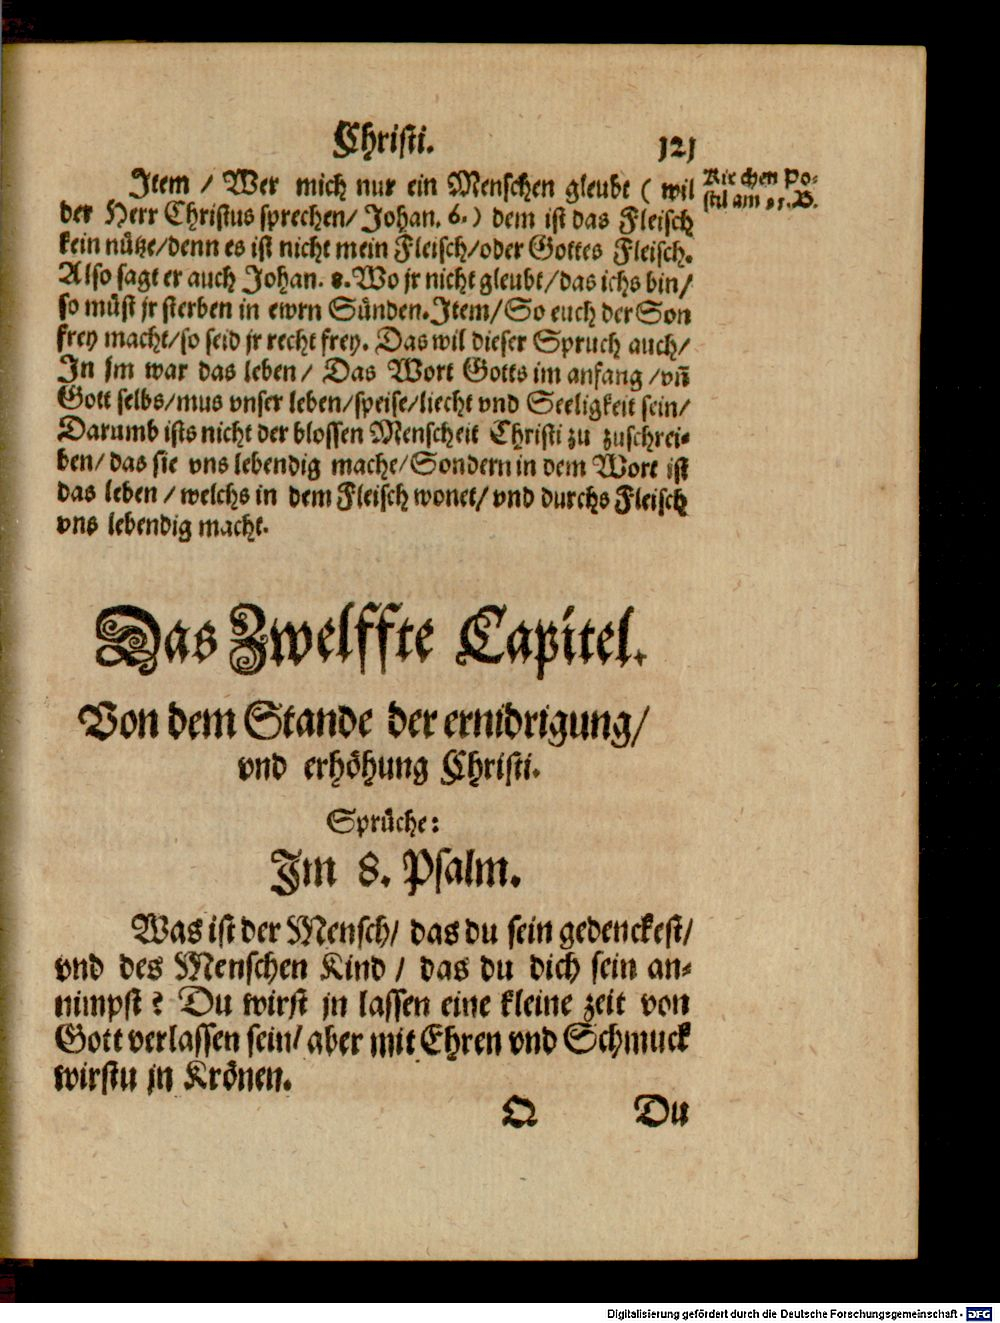 Christi. 121
Item / Wer mich nur ein Menschen gleubt ( wil
Kirchen Po-
der Herr Christus sprechen/ Johan. 6. ) dem ist das Fleisch
stil am
kein nütze/denn es ist nicht mein Fleisch/oder Gottes Fleisch.
Also sagt er auch Johan. 8. Wo jr nicht gleubt/das ichs bin/
so müst jr sterben in ewrn Sünden. Item/ So euch der Son
frey macht/so seid jr recht frey. Das wil dieser Spruch auch/
In jm war das leben / Das Wort Gotts im anfang /vñ
Gott selbs/mus vnser leben/speise/liecht vnd Seeligkeit sein/
Darumb ists nicht der blossen Menscheit Christi zu zuschrei-
ben/ das sie vns lebendig mache/ Sondern in dem Wort ist
das leben / welchs in dem Fleisch wonet/ vnd durchs Fleisch
vns lebendig macht.
Das Zwelffte Capitel.
Von dem Stande der ernidrigung/
vnd erhöhung Christi.
Sprüche:
Im 8. Psalm.
Was ist der Mensch/ das du sein gedenckest/
vnd des Menschen Kind / das du dich sein an-
nimpst? Du wirst jn lassen eine kleine zeit von
Gott verlassen sein/ aber mit Ehren vnd Schmuck
wirstu jn Krönen.
Q Du
Digitalisierung gefördert durch die Deutsche Forschungsgemeinschaft - DFG